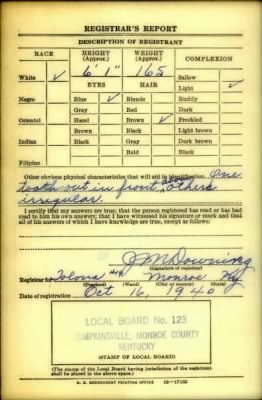 REGISTRAR'S REPORT
DESCRIPTION OF REGISTRANT
RACE HEIGHT (Approx.) WEIGHT (Approx.) COMPLEXION
White ✓ 6' 1" 165 Sallow
EYES HAIR Light ✓
Negro Blue ✓ Blonde Ruddy
Gray Red Dark
Oriental Hazel Brown ✓ Freckled
Brown Black Light brown
Indian Black Gray Dark brown
Bald Black
Filipino
Other obvious physical characteristics that will aid in identification One
tooth out in front and others
irregular.
I certify that my answers are true; that the person registered has read or has had
read to him his own answers; that I have witnessed his signature or mark and that
all of his answers of which I have knowledge are true, except as follows:
J M Downing
(Signature of registrar)
Registrar for Monroe Ky
(Precinct) (Ward) (City or county) (State)
Date of registration Oct 16, 1940
LOCAL BOARD No. 123
TOMPKINSVILLE, MONROE COUNTY
KENTUCKY
(STAMP OF LOCAL BOARD)
(The stamp of the Local Board having jurisdiction of the registrant
shall be placed in the above space.)
U. S. GOVERNMENT PRINTING OFFICE 16—17105